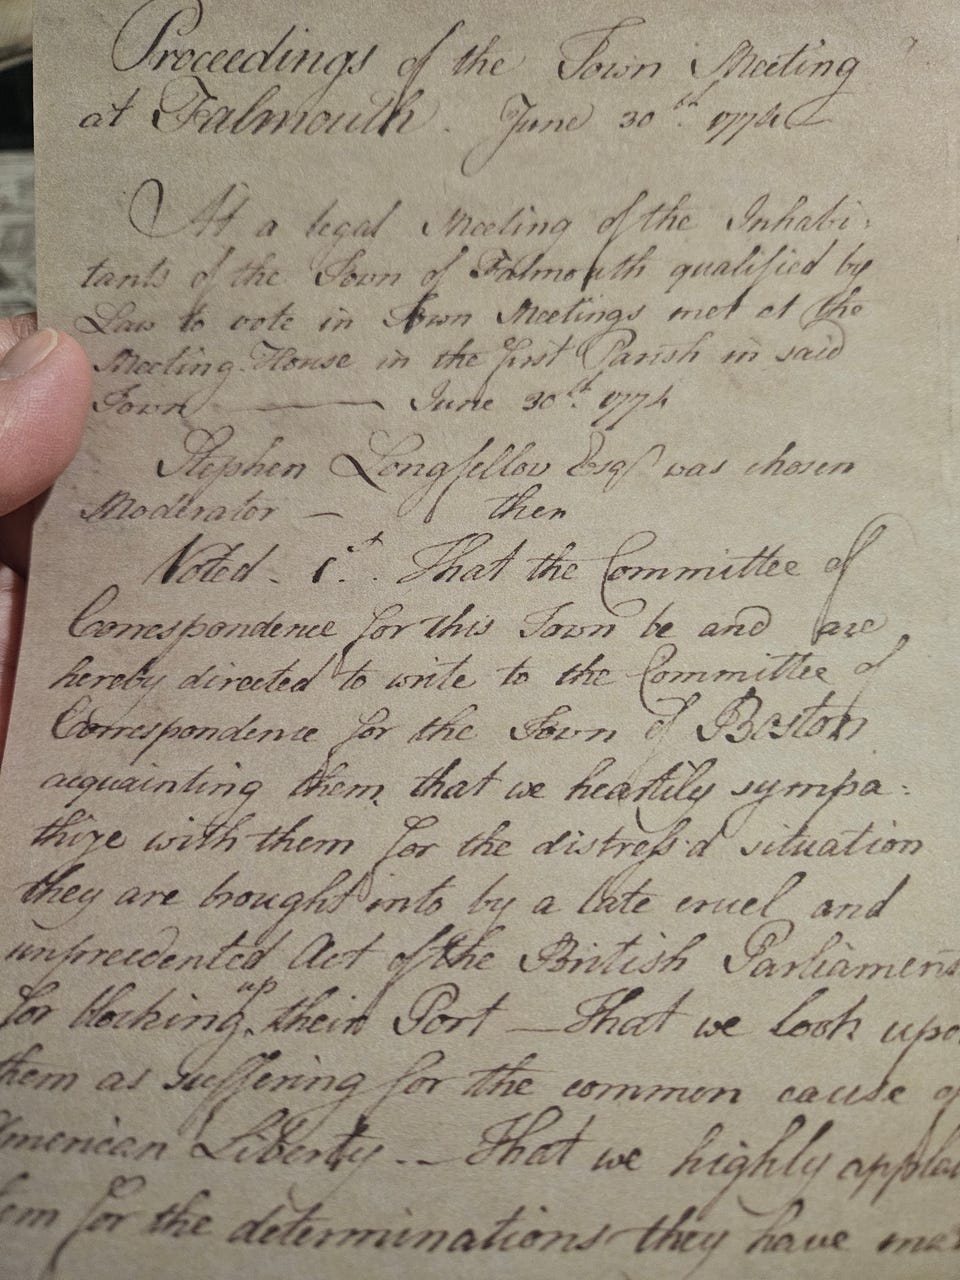 Proceedings of the Town Meeting
at Falmouth. June 30th. 1774
At a legal Meeting of the Inhabi-
tants of the Town of Falmouth qualified by
Law to vote in Town Meetings met at the
Meeting House in the first Parish in said
Town — June 30th. 1774
Stephen Longfellow Esqr was chosen
Moderator — then
Voted - 1st. That the Committee of
Correspondence for this Town be and are
hereby directed to write to the Committee of
Correspondence for the Town of Boston
acquainting them, that we heartily sympa-
thize with them for the distress'd situation
they are brought into by a late cruel and
unprecedented Act of the British Parliament
up
for blocking their Port — That we look upo
them as suffering for the common cause of
American Liberty. — That we highly applau
em for the determinations they have ma